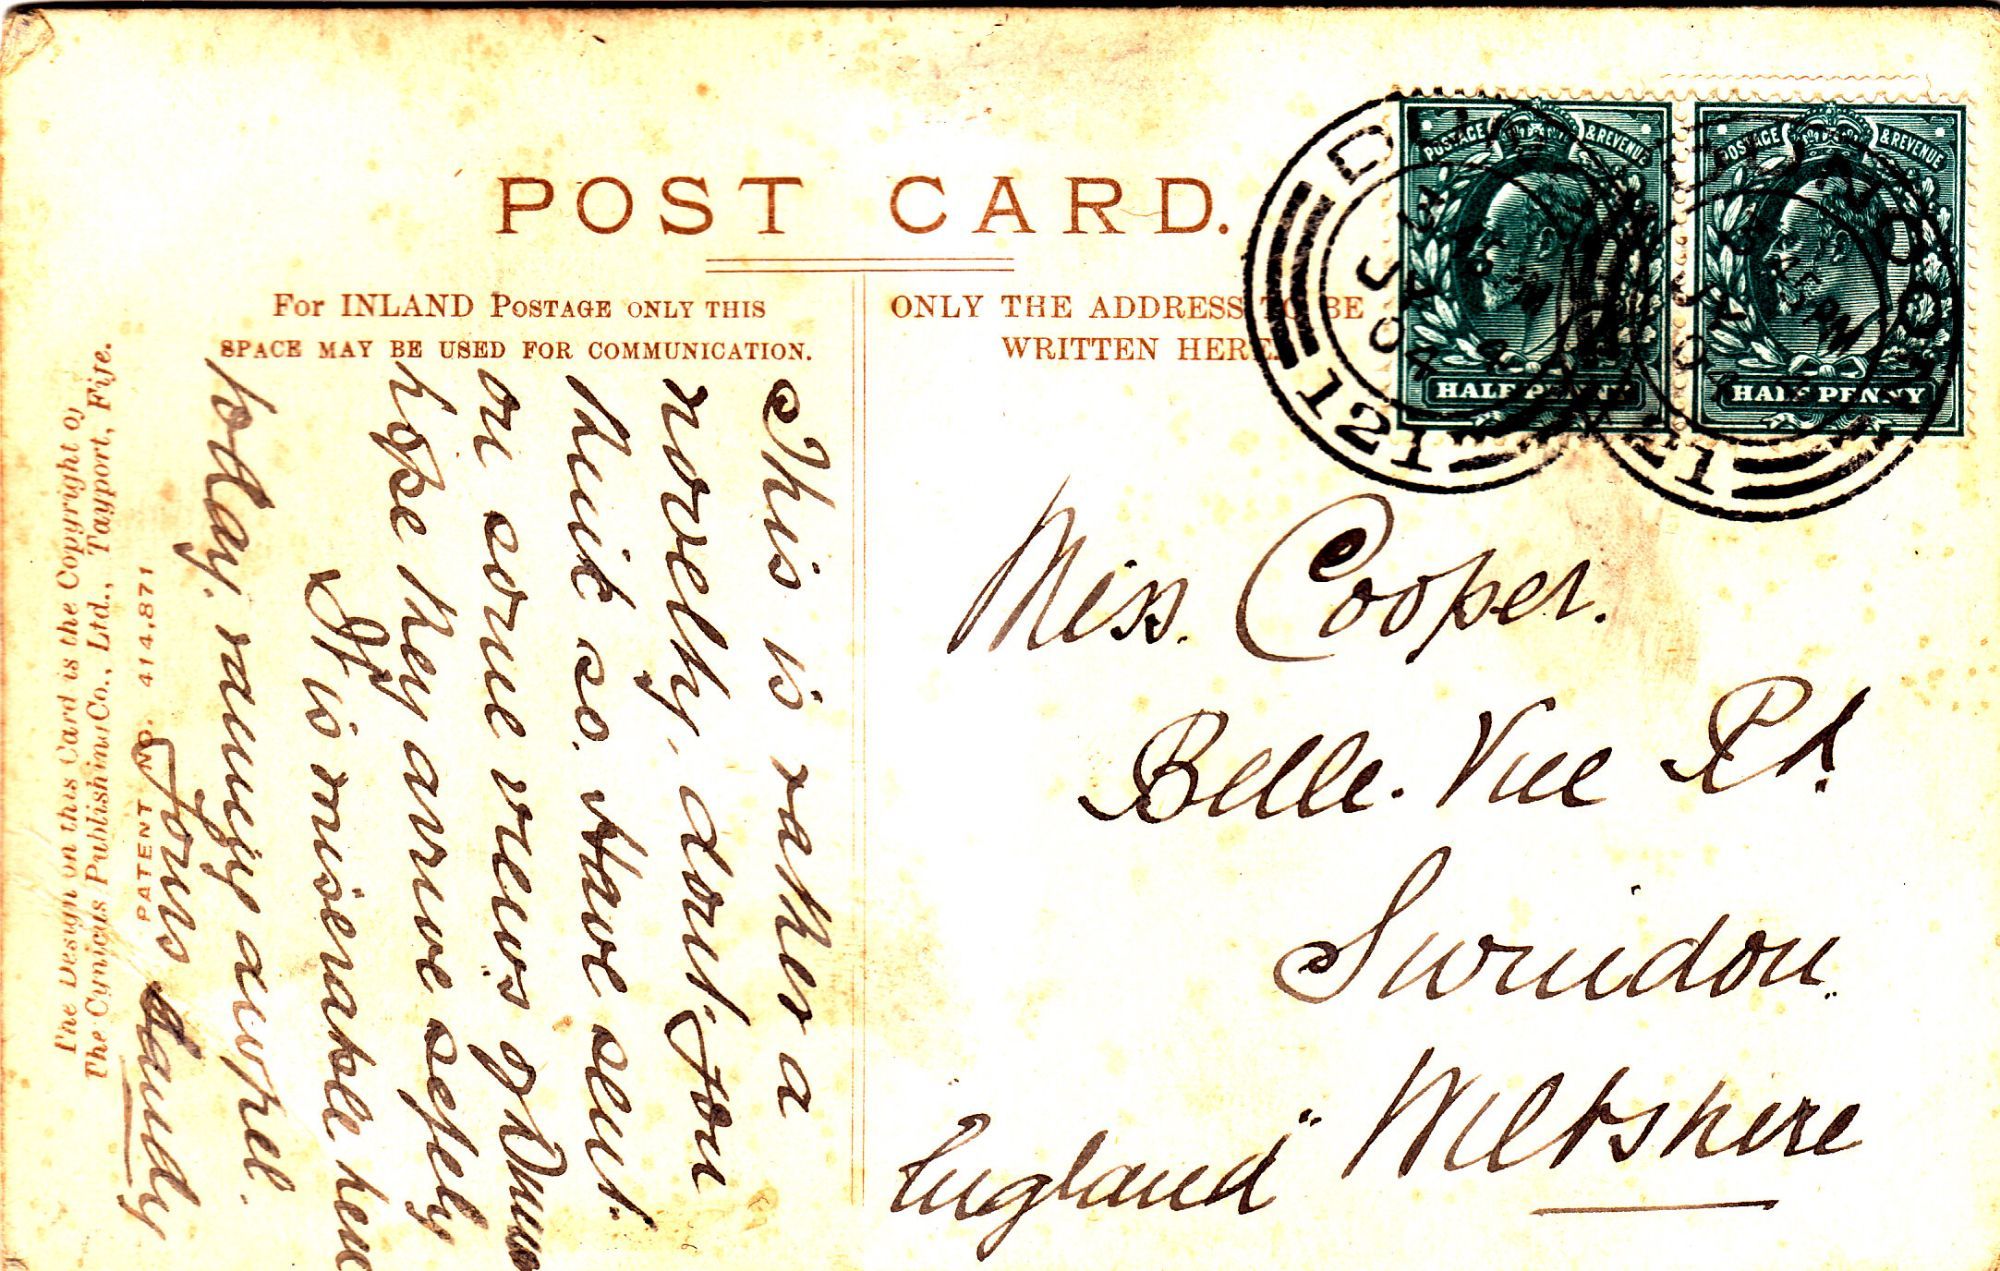 POST CARD.
For INLAND POSTAGE ONLY THIS
SPACE MAY BE USED FOR COMMUNICATION.
ONLY THE ADDRESS TO BE
WRITTEN HERE.
POSTAGE & REVENUE
HALF PENNY
POSTAGE & REVENUE
HALF PENNY
JY
04
121
JY
121
This is rather a
novelty, dont you
think so. Have sent
on some views of
hope they arrive safely
It is miserable here
today, raining awful.
Yours Sandy
Miss. Cooper.
Belle. Vue Rd.
Swindon
Wiltshire
England
The Design on this Card is the Copyright of
The Cynicus Publishing Co., Ltd., Tayport, Fife.
PATENT NO. 414,871